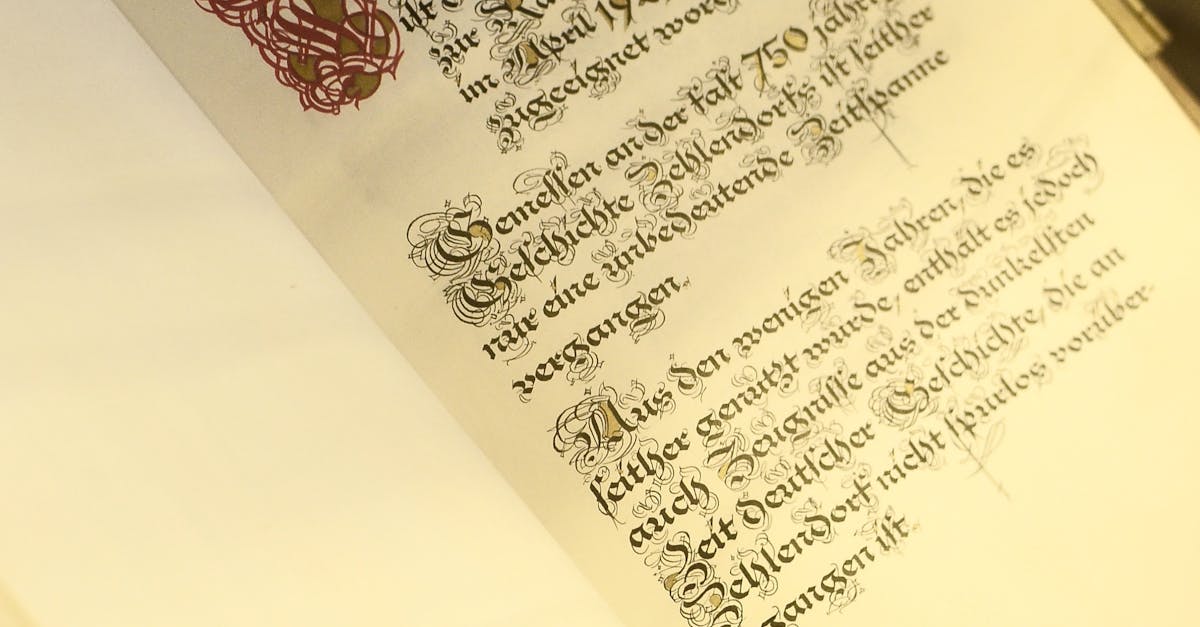 ist
zur
im April
zugeeignet
Gemessen an der fast 750
Geschichte Zehlendorfs, ist seither
nur eine unbedeutende Zeitspanne
vergangen.
Aus den wenigen Jahren, die es
seither genutzt wurde, enthält es jedoch
auch Zeugnisse aus der dunkelsten
Zeit deutscher Geschichte, die an
Zehlendorf nicht spurlos vorüber-
gangen ist.